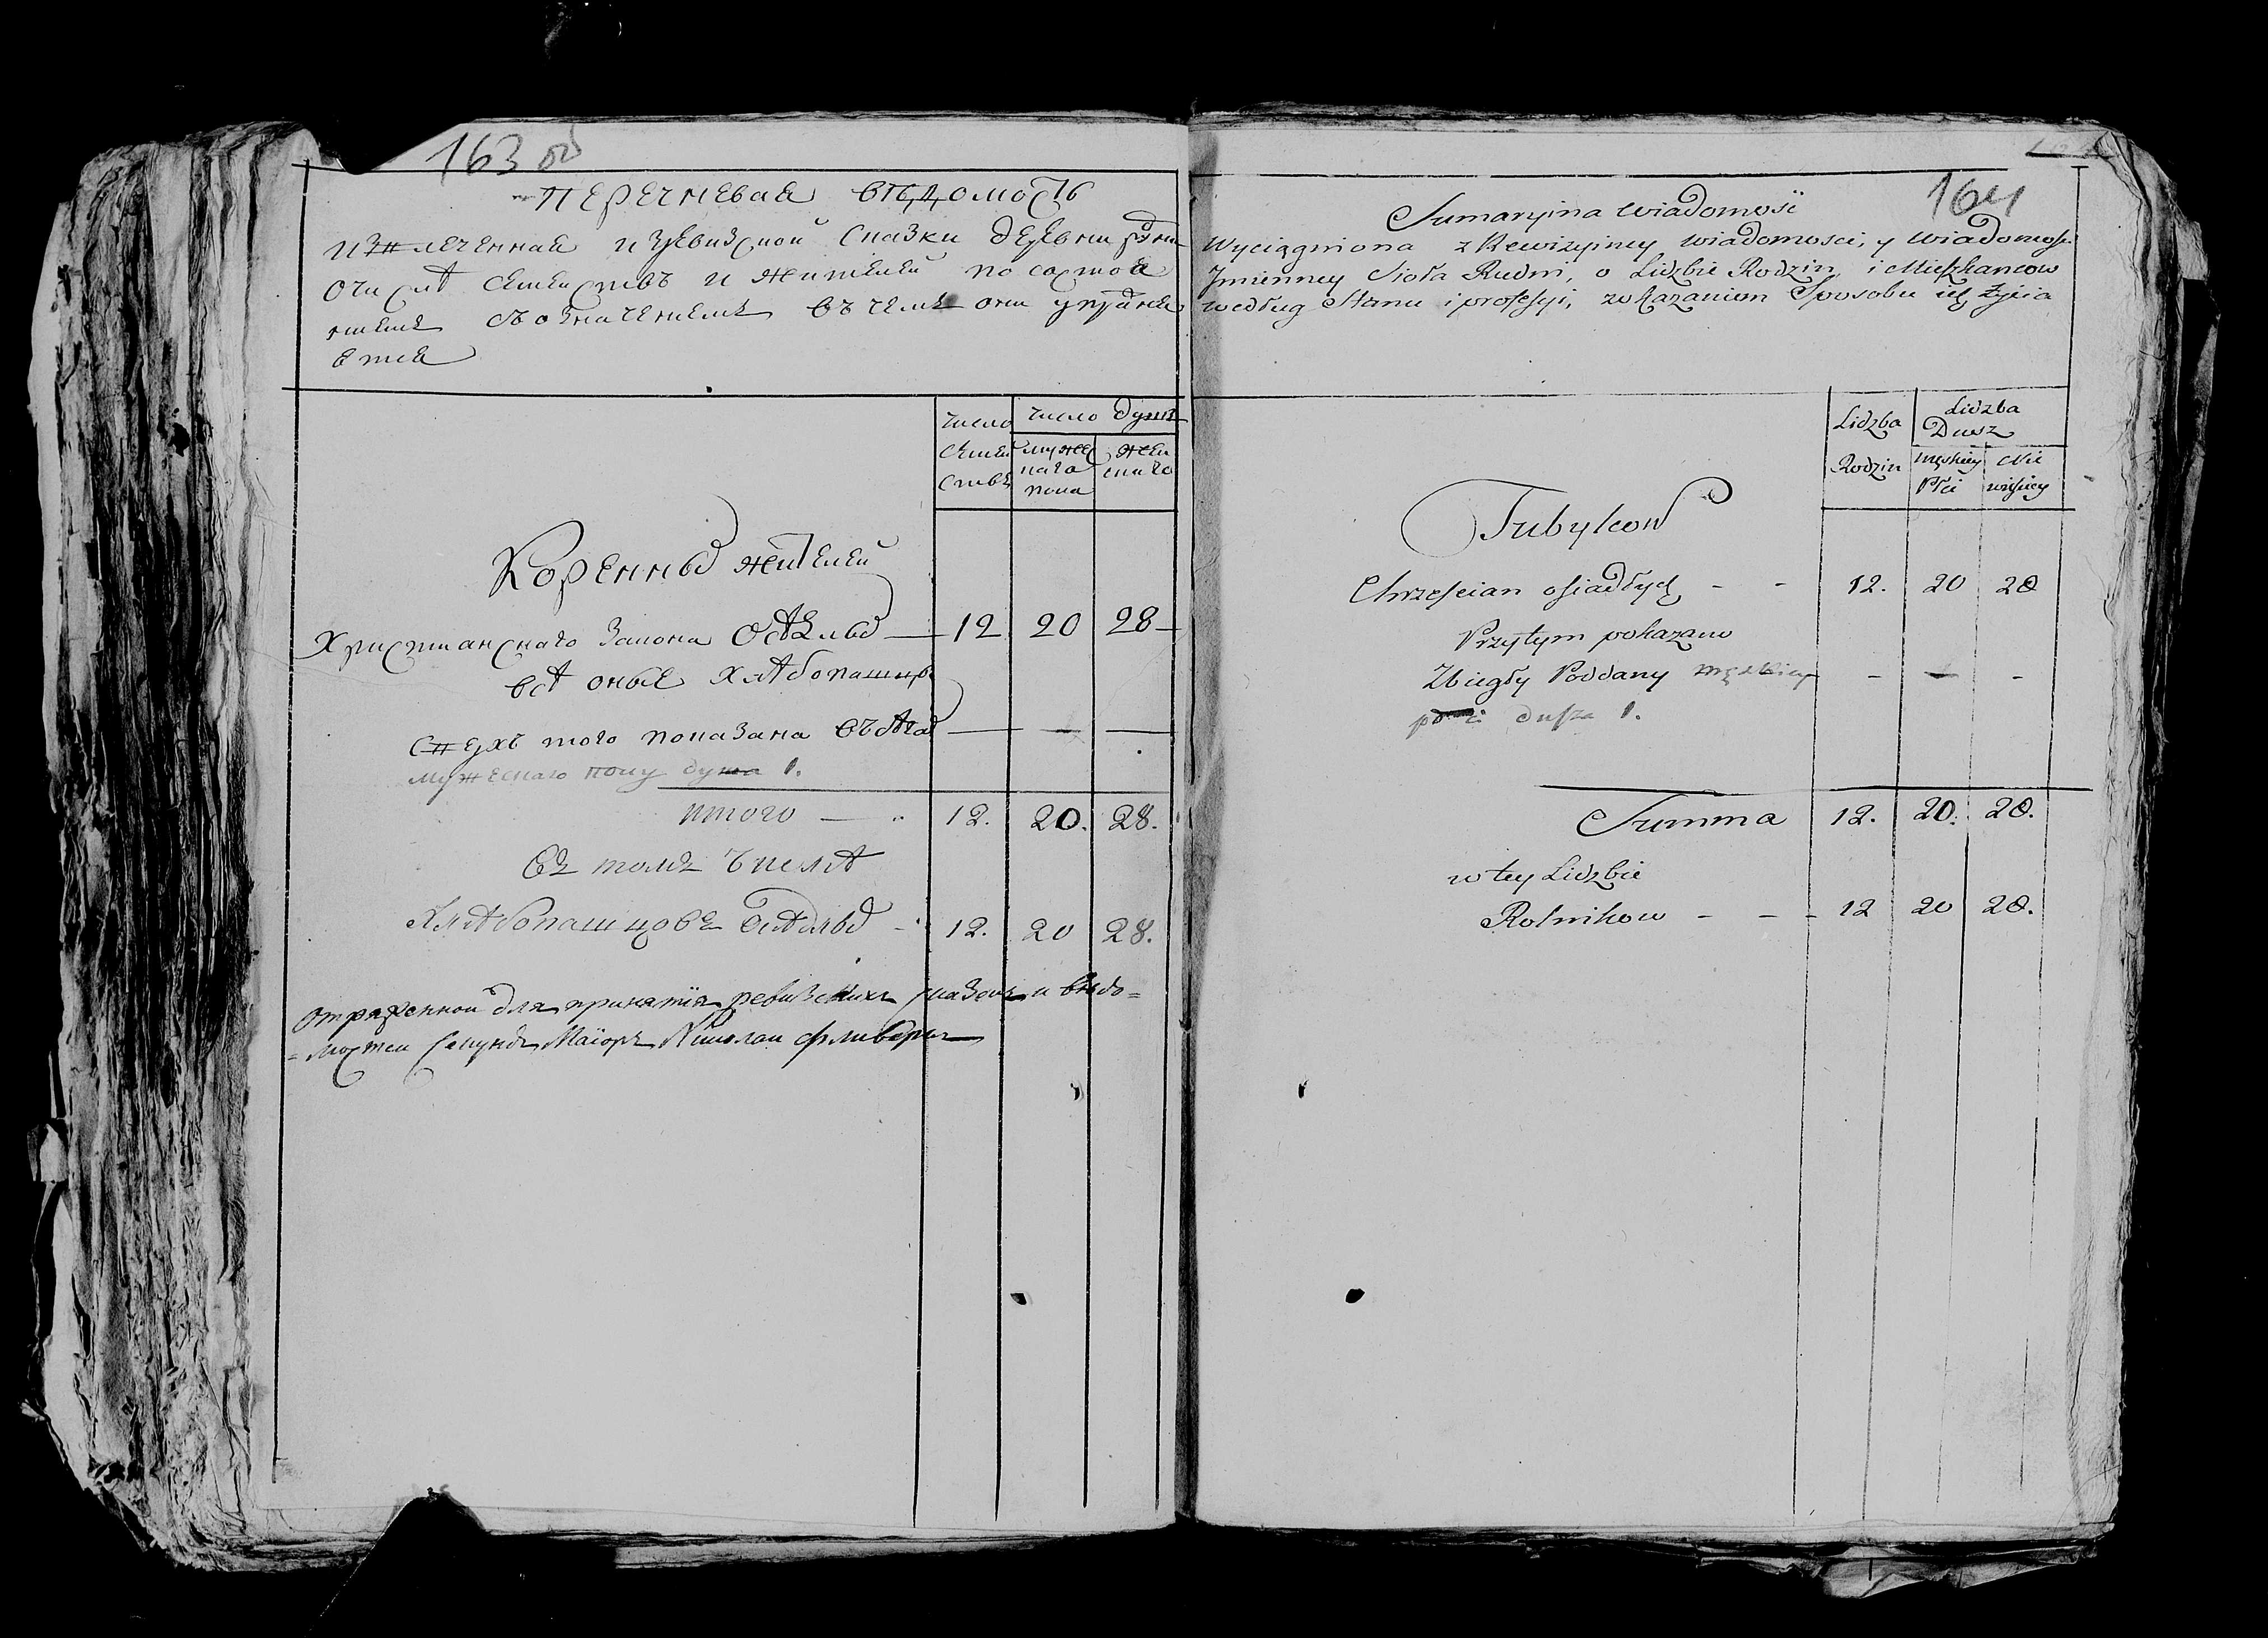 163 об
Перечневая вѣдомость
извлеченная изревизской сказки деревни рудни
очислѣ семействъ и жителей по состоя
ниемъ съозначениемъ въ чемъ они упражня
ются
число
семей
ствъ
число душъ
мужес
каго
пола
жен
скаго
Коренныхъ жителей
Христианскаго закона осѣдлыхъ — 12 20 28 —
всѣ оные хлѣбопашцы
сверхъ того показана въ бѣгахъ — — —
мужескаго полу душа 1.
итого — 12. 20. 28.
Въ томъ числѣ
Хлѣбопашцовъ осѣдлыхъ - 12. 20 28.
Отряженной для принятия ревизскихъ сказокъ и вѣдо=
=мостей секундъ Маiоръ Николай
164
Sumaryina wiadomość
Wyciągniona z Rewizyiney wiadomosci, y wiadomosci
Jmienney Sioła Rudni, o Lidzbie Rodzin i Mieszkancow
według Stanu i professyi, z okazaniem Sposobu ich życia
Lidzba
Rodzin
Lidzba
Dusz
męskiey
Płci
Nie
wiesciey
Tubylcow
Chrzescian osiadłych - - 12. 20 28
Przytym pokazano
Zbiegły Poddany męzkiey - - -
płci dusza 1.
Summa 12. 20. 28.
w tey Lidzbie
Rolnikow - - - 12 20 28.